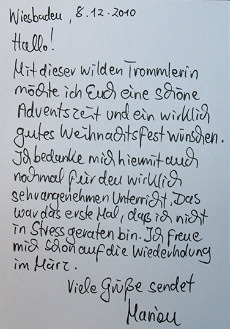 Wiesbaden, 8.12.2010
Hallo!
Mit dieser wilden Trommlerin
möchte ich Euch eine schöne
Adventszeit und ein wirklich
gutes Weihnachtsfest wünschen.
Ich bedanke mich hiermit auch
nochmal für den wirklich
sehr angenehmen Unterricht. Das
war das erste Mal, daß ich nicht
in Stress geraten bin. Ich freue
mich schon auf die Wiederholung
im März.
Viele Grüße sendet
Marion